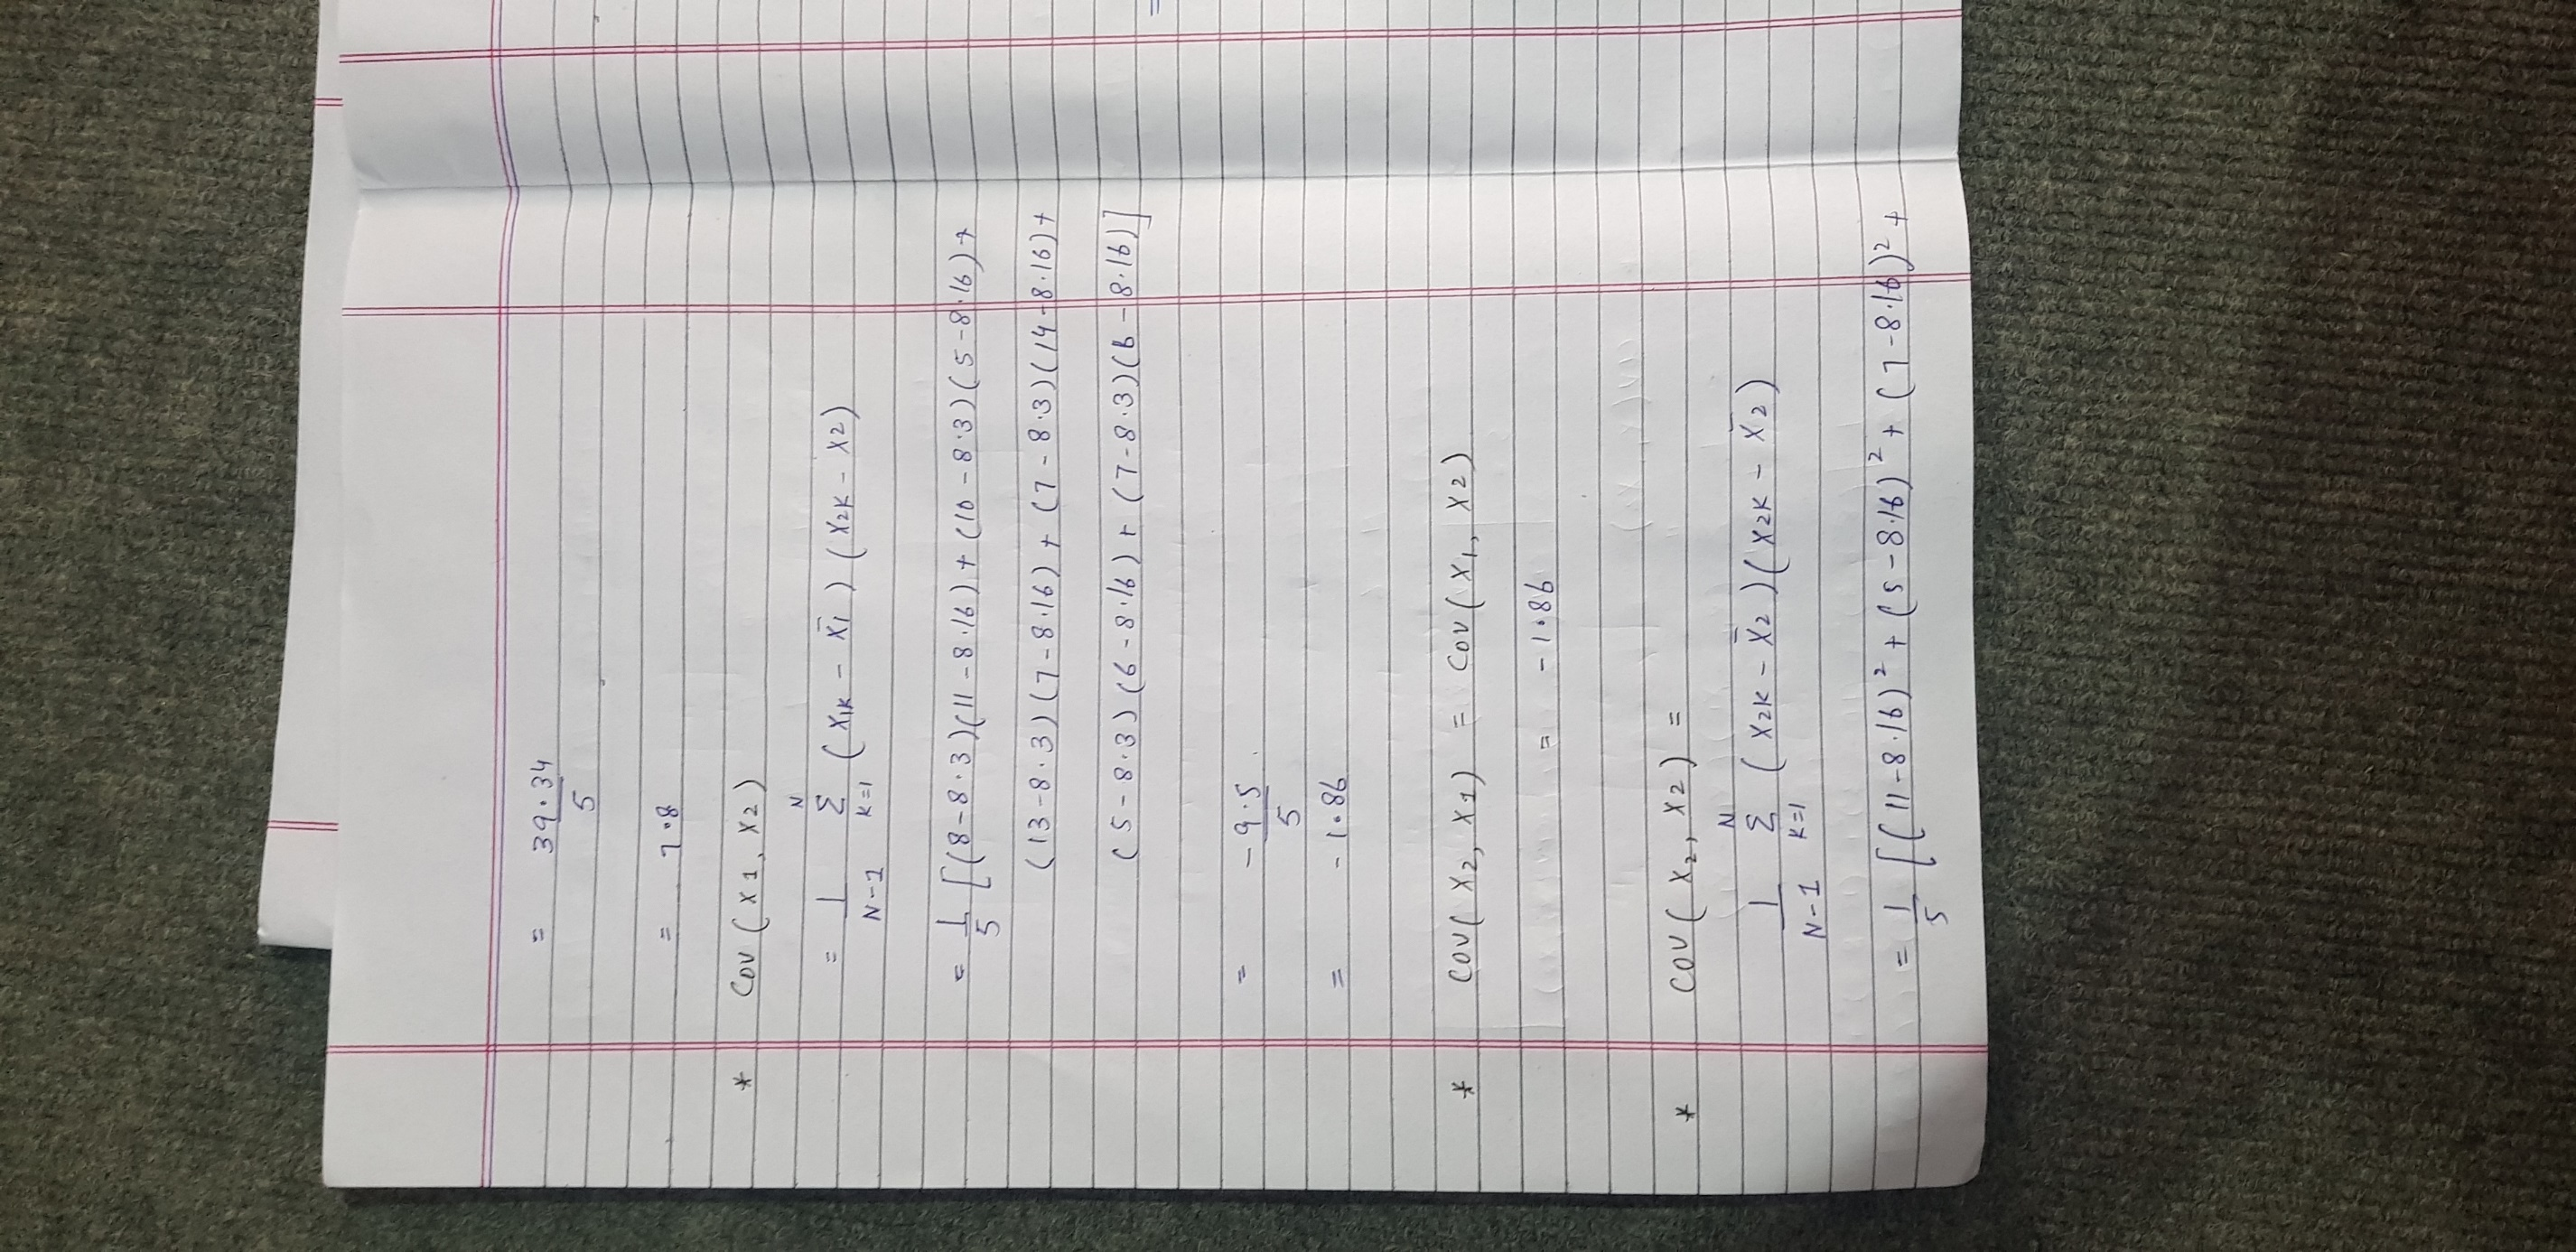 = 39.34
5
= 7.8
* Cov (x1, x2)
= 1 N Σ (x1k - x̄1) (x2k - x2)
N-1 k=1
= 1 [(8-8.3)(11-8.16) + (10-8.3)(5-8.16) +
5
(13-8.3)(7-8.16) + (7-8.3)(14-8.16) +
(5-8.3)(6-8.16) + (7-8.3)(6-8.16)]
= -9.5
5
= -1.86
* Cov (x2, x1) = Cov (x1, x2)
= -1.86
* Cov (x2, x2) =
1 N Σ (x2k - x̄2)(x2k - x̄2)
N-1 k=1
= 1 [(11-8.16)² + (5-8.16)² + (7-8.16)² +
5